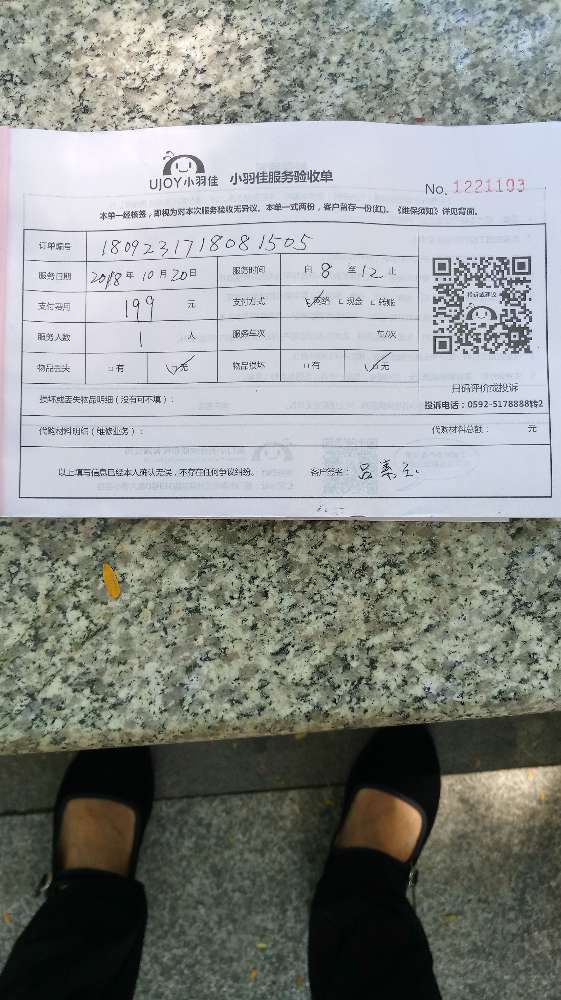 UJOY小羽佳 小羽佳服务验收单
No. 1221193
本单一经核签，即视为对本次服务验收无异议。本单一式两份，客户留存一份(红)。《维保须知》详见背面。
订单编号 1809231718081505
服务日期 2018年10月20日 服务时间 日8至12止
支付费用 199元 支付方式 网络 现金 转账
服务人数 1人 服务车次 车/次
物品丢失 有 无 物品损坏 有 无
投诉或建议
扫码评价或投诉
投诉电话：0592-5178888转2
损坏或丢失物品明细（没有可不填）：
代购材料明细（维修业务）： 代购材料总额： 元
以上填写信息已经本人确认无误，不存在任何争议纠纷。 客户签名：吕